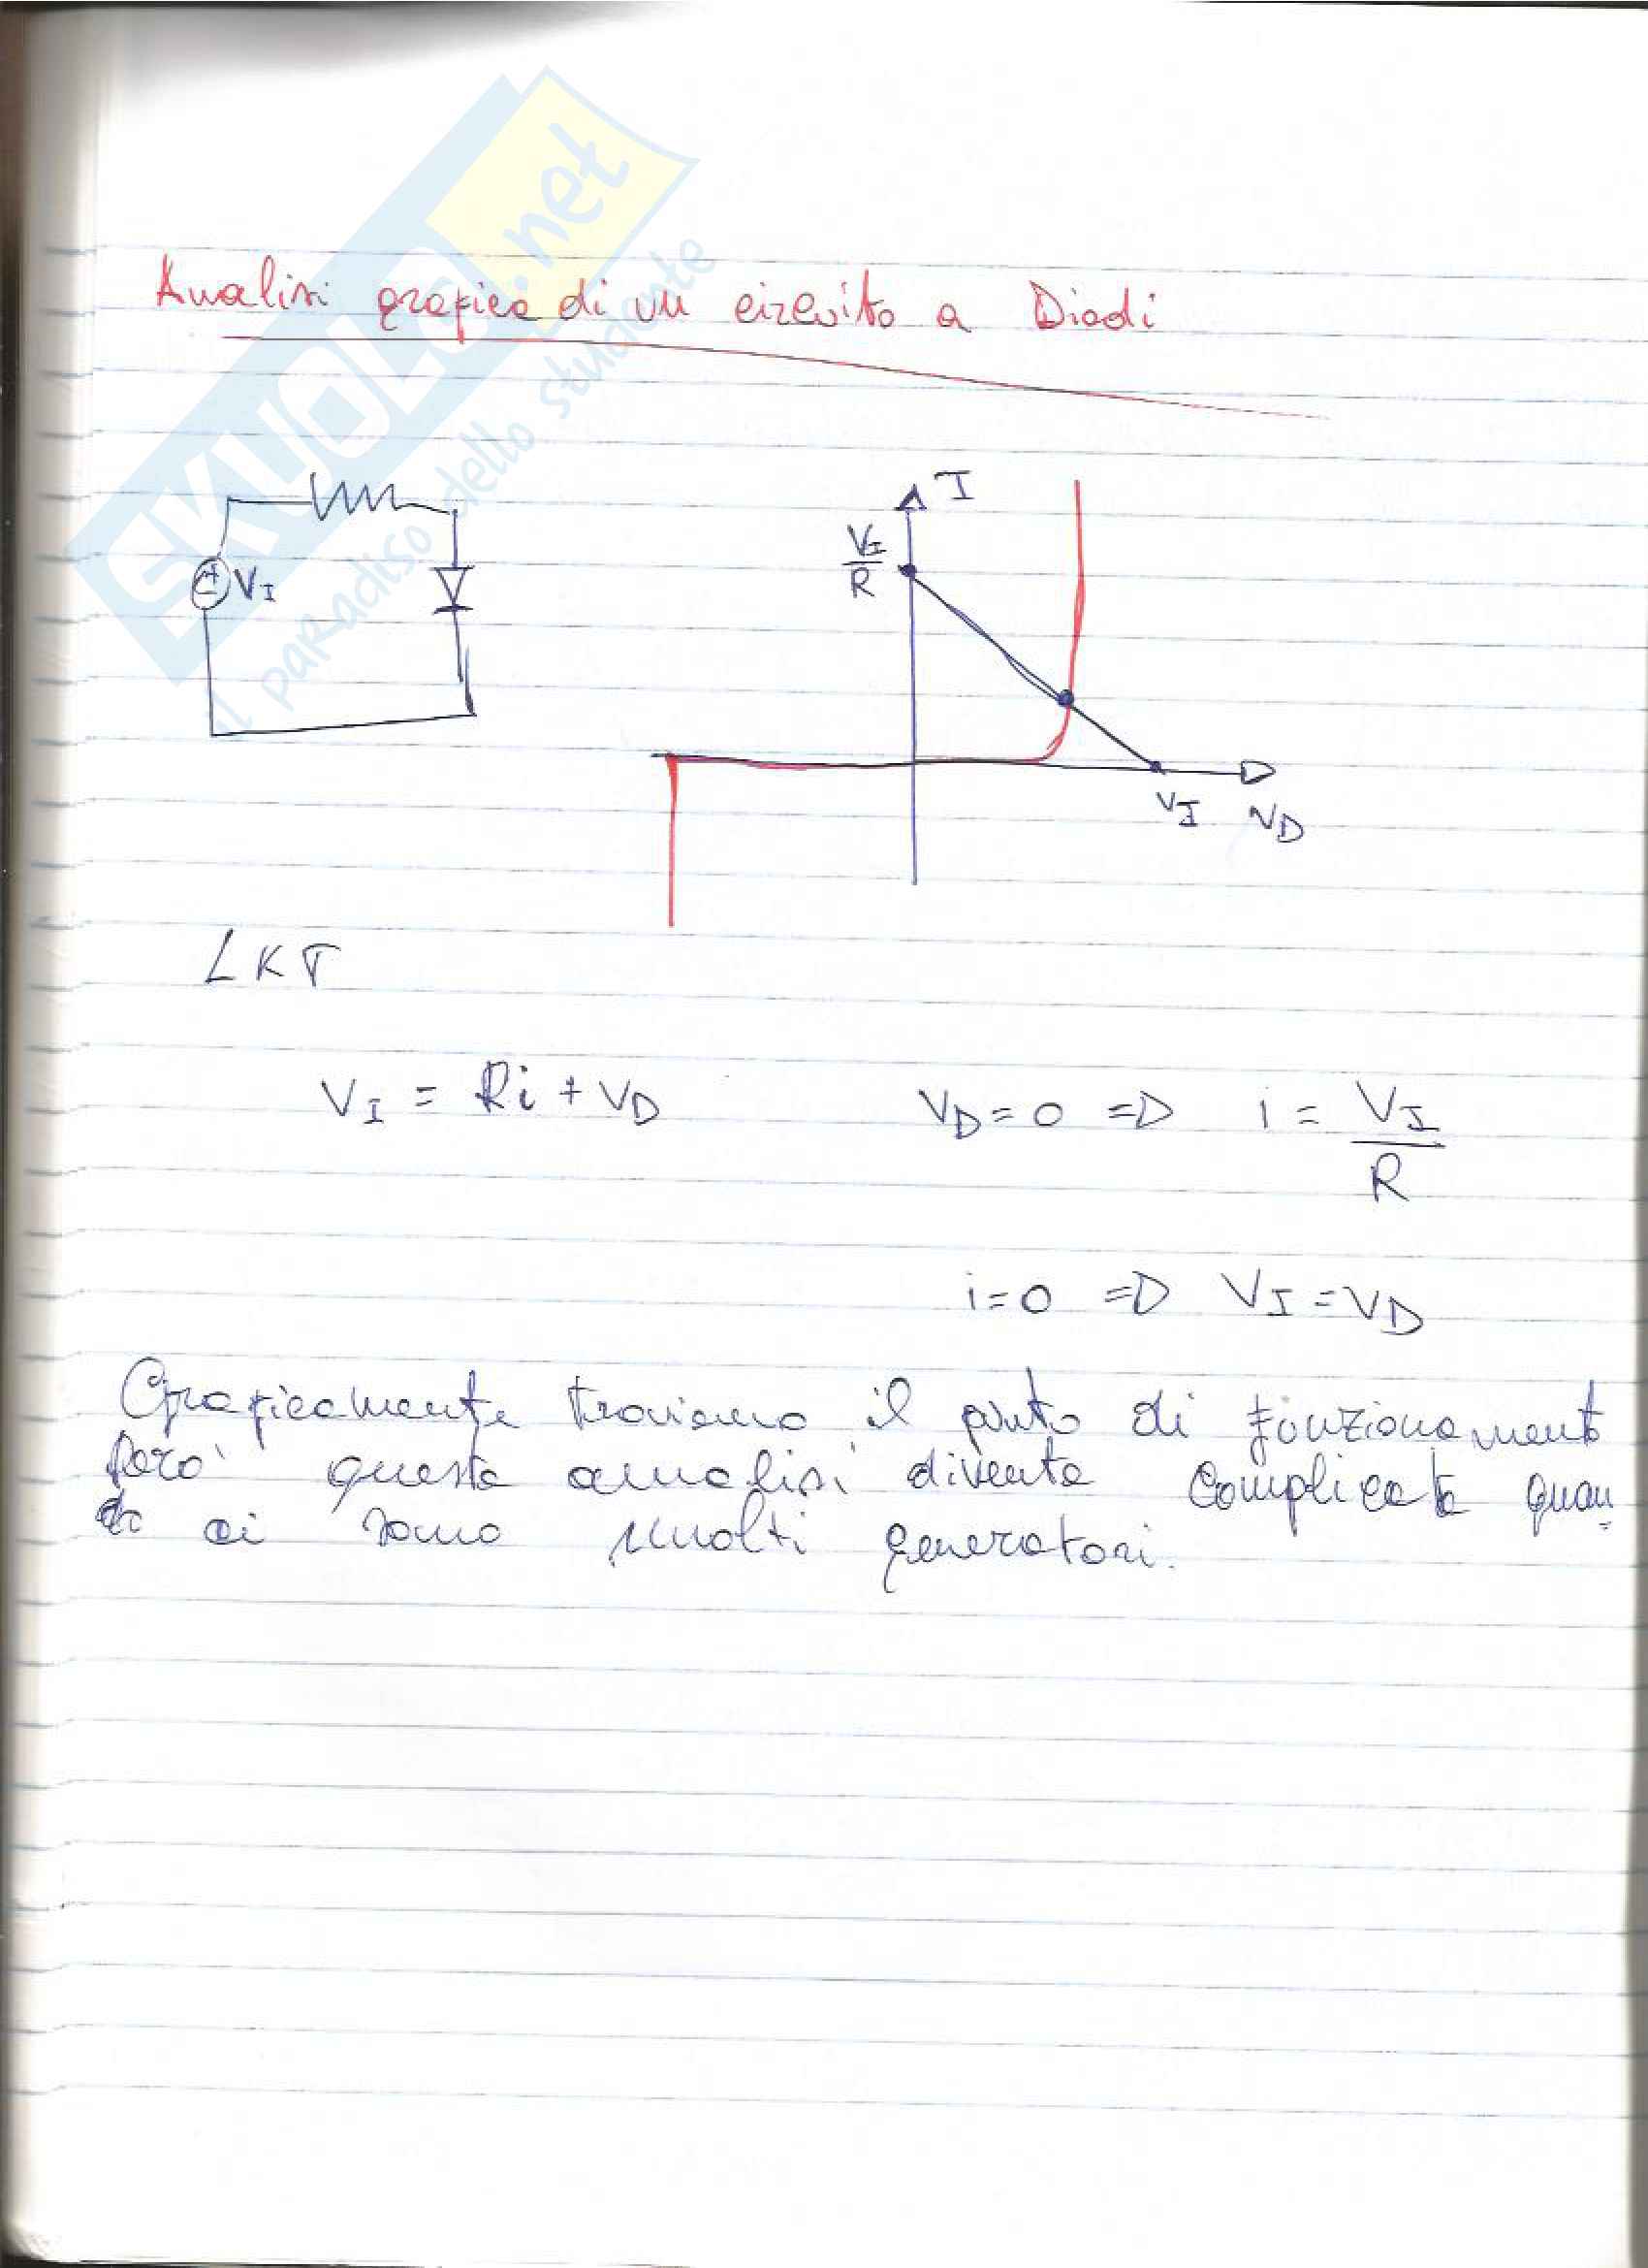 SKUOLA.net
il paradiso dello studente
Analisi grafica di un circuito a Diodi
V_I
I
V_I/R
V_I V_D
LKT
V_I = Ri + V_D
V_D = 0 => i = V_I/R
i = 0 => V_I = V_D
Graficamente troviamo il punto di funzionamento
però questa analisi diventa complicata quan
do ci sono molti generatori.